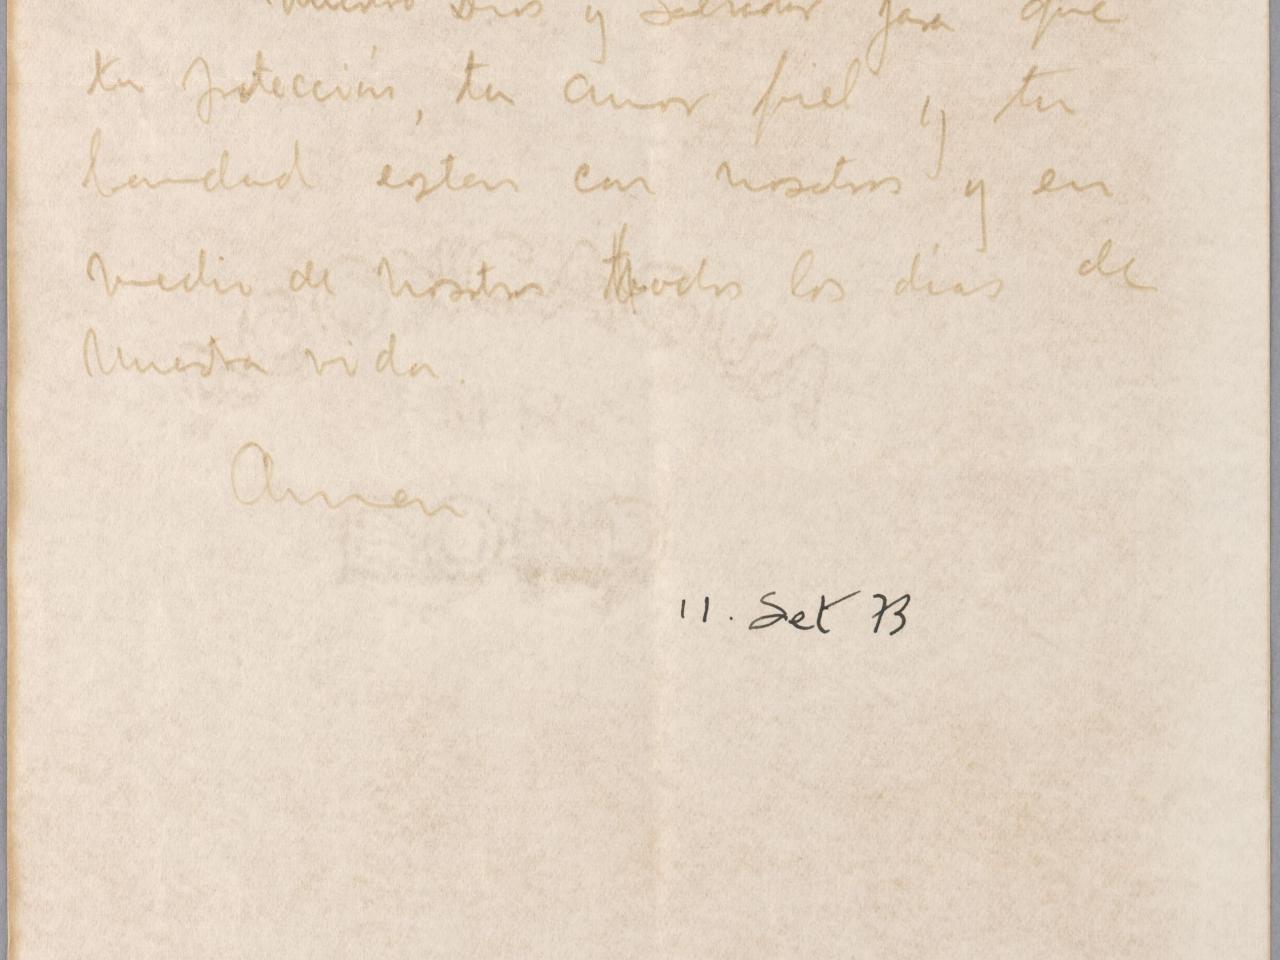 nuestro Dios y Salvador para que
tu protección, tu amor fiel y tu
bondad esten con nosotros y en
medio de nosotros todos los días de
nuestra vida.
Amen
11. Set 73